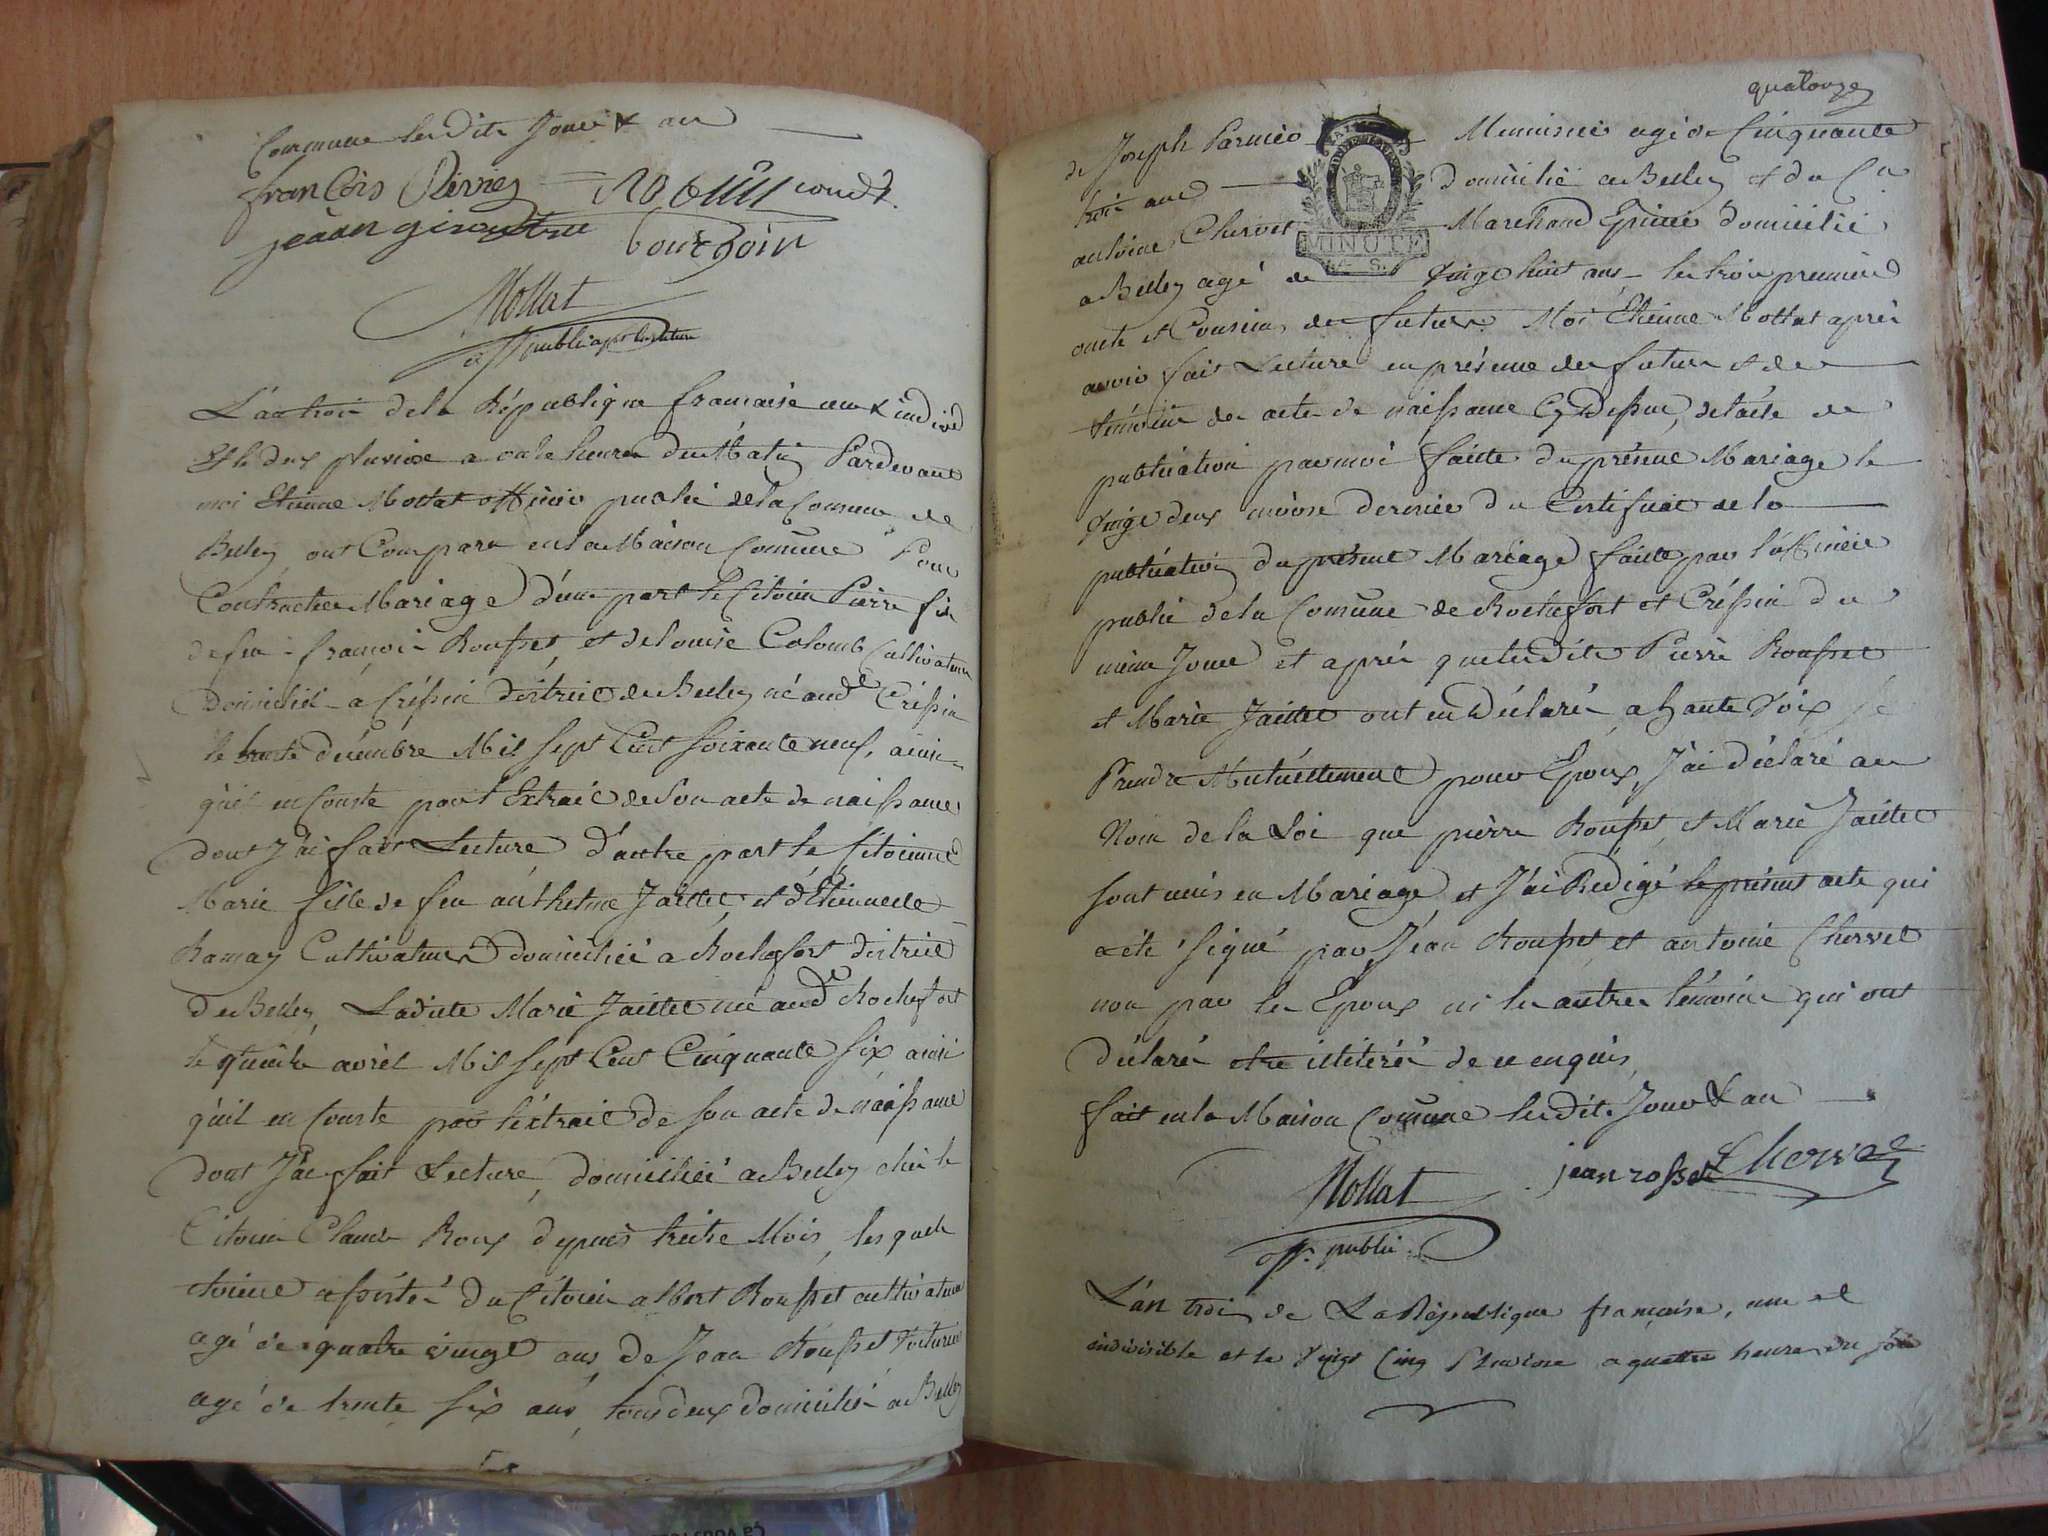 Commune lesdits Jour & an
françois Perrier
jean
bourgoin
Mottat
off public après lecture
L'an trois de la République française une & indivi
Et le deux pluviose a onze heures du Matin Pardevant
moi Etienne Mottat officier public de la Comune de
Belley ont Comparu en la Maison Comune Pour
Contracter Mariage D'une part le Citoien Pierre fils
de feu françois Rousset et de louise Colomb Cultivateur
Domicilié a Créssin District de Belley né aud. Créssin
le trente décembre Mil sept Cent soixante neuf, ainsi
qu'il en Conste par l'Extrait de son acte de naissance
dont J'ai fait Lecture D'autre part la Citoienne
Marie fille de feu anthelme Jaillet et d'Etiennette
Ramay Cultivateurs domiciliés a Rochefort district
De Belley, Ladite Marie Jaillet née aud. Rochefort
le quinze avril Mil sept Cent Cinquante six ainsi
qu'il en Conste par l'éxtrait de son acte de naissance
dont J'ai fait Lecture, domiciliée a Belley chez le
Citoien Claude Roux depuis treize Mois, les quels
étoient assistés du Citoien albert Rousset cultivateur
agé de quatre vingt ans, de Jean Rousset Voiturier
agé de trente six ans, tous deux domiciliés a Belley
quatorze
de Joseph Parnier Menuisier agé de Cinquante
trois ans domicilié a Belley et du Cn
antoine Chervet Marchand Epicier domicilié
a Belley agé de Vingt huit ans les trois premiers
oncle et Cousins des futurs Moi Etienne Mottat après
avoir fait Lecture en présence des futurs et des
témoins des actes de naissance Cy Dessus, de l'acte de
publication par moi faitte du présent Mariage le
Vingt deux nivose dernier du Certificat de la
publication du présent Mariage faitte par l'officier
public de la Comune de Rochefort et Créssin du
même Jour et après que lesdits Pierre Rousset
et Marie Jaillet ont eu Déclaré a haute Voix se
Prendre Mutuellement pour Epoux, J'ai déclaré au
Nom de la Loi que pierre Rousset et Marie Jaillet
sont unis en Mariage et J'ai Redigé le présent acte qui
a été signé par Jean Rousset et antoine Chervet
non par les Epoux ni les autres témoins qui ont
Déclaré etre illitérés de ce enquis
fait en la Maison Comune lesdits Jour & an
MINUTE
Mottat jean rosset Chervet
off. public
L'an trois de La République française, une et
indivisible et le Vingt Cinq Pluviose a quatre heures du soir